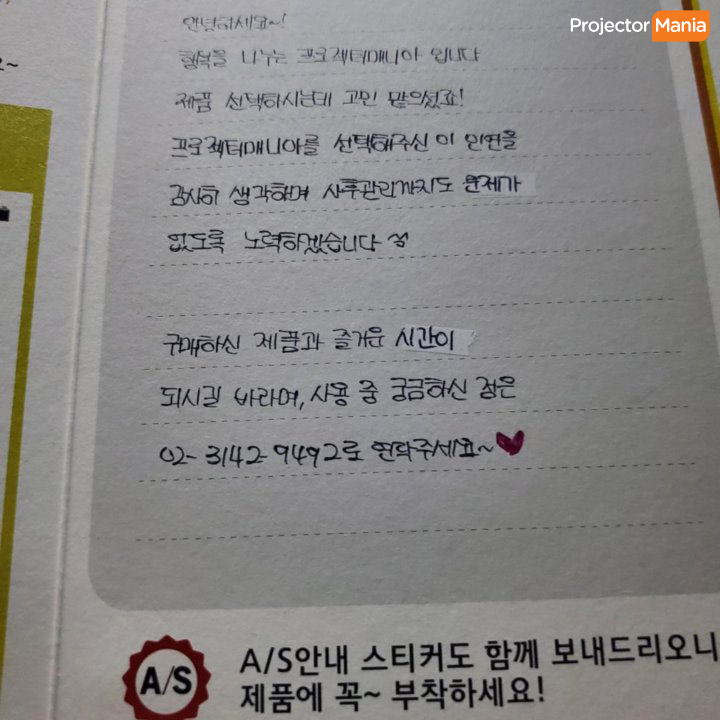 Projector Mania
안녕하세요~!
행복을 나누는 프로젝터매니아 입니다
제품 선택하시는데 고민 많으셨죠!
프로젝터매니아를 선택해주신 이 인연을
감사히 생각하며 사후관리까지도 문제가
없도록 노력하겠습니다
구매하신 제품과 즐거운 시간이
되시길 바라며, 사용 중 궁금하신 점은
02-3142-9492로 연락주세요~♥
A/S
A/S안내 스티커도 함께 보내드리오니
제품에 꼭~ 부착하세요!